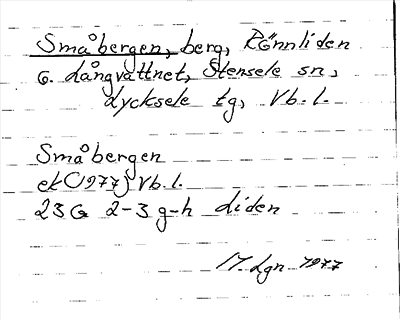 Småbergen, berg, Rönnliden
G. Långvattnet, Stensele sn,
Lycksele tg, Vb. l.
Småbergen
ek (1977) Vb. l.
23G 2-3 g-h Liden
Lgn 1977